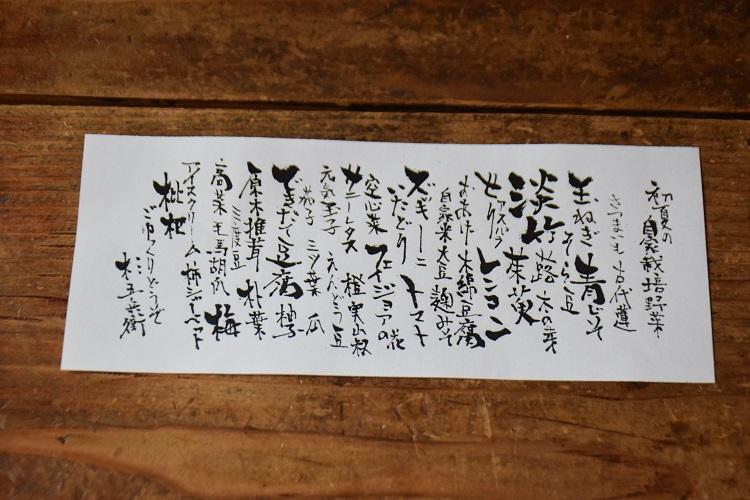 初夏の
自家栽培野菜
さつまいも 古代蓮
玉ねぎ 青じそ
そら豆
淡竹 蕗 木の芽
茱萸
せり アスパラ レモン
よもあげ 木綿豆腐
自家米大豆 麹みそ
ズッキーニ トマト
いたどり フェイジョアの花
空心菜
サニーレタス 橙 実山椒
元気玉子 えんどう豆
茄子 三ツ葉 瓜
できたて豆腐 柚子
三度豆
原木椎茸 朴葉
高菜 毛馬胡瓜 梅
アイスクリーム 柿シャーベット
枇杷
ごゆっくりどうぞ
杉五兵衛